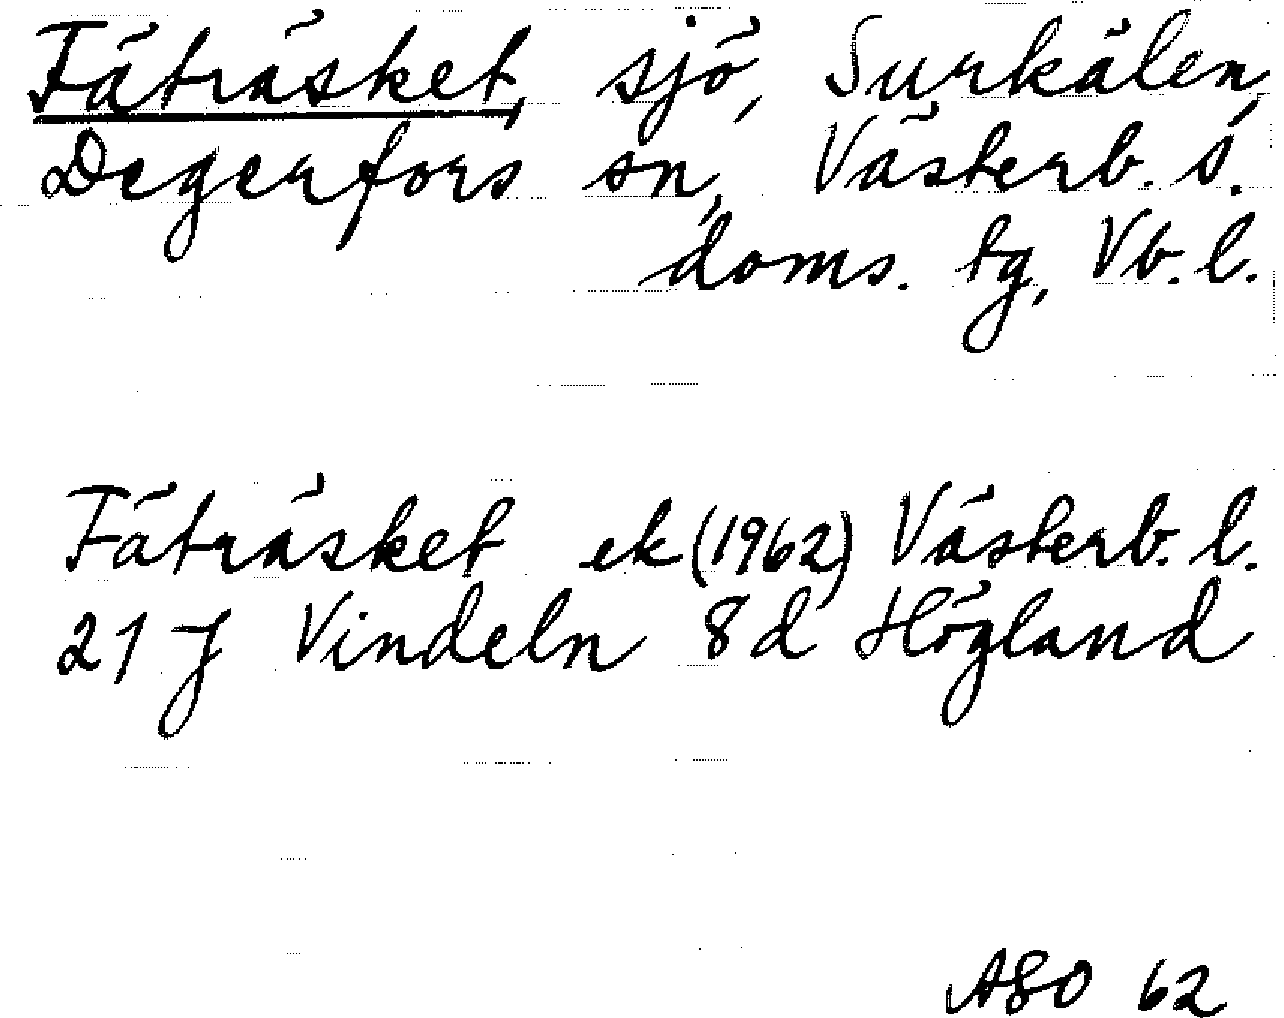 Fäträsket, sjö, Surkälen,
Degerfors sn, Västerb. s.
doms. tg, Vb. l.
Fäträsket ek (1962) Västerb. l.
21 J Vindeln 8d Högland
ASO 62